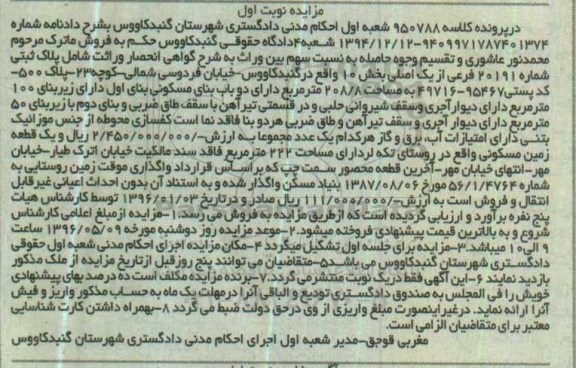 مزایده نوبت اول
درپرونده کلاسه ۹۵۰۷۸۸ شعبه اول احکام مدنی دادگستری شهرستان گنبدکاووس بشرح دادنامه شماره
۹۴۰۹۹۷۱۷۸۷۴۰۱۳۷۴-۱۳۹۴/۱۲/۱۲ شعبه۴دادگاه حقوقی گنبدکاووس حکم به فروش ماترک مرحوم
محمدنور عاشوری و تقسیم وجوه حاصله به نسبت سهم بین وراث به شرح گواهی انحصار وراثت شامل پلاک ثبتی
شماره ۲۰۱۹۱ فرعی از یک اصلی بخش ۱۰ واقع درگنبدکاووس-خیابان فردوسی شمالی-کوچه۲۳-پلاک ۵۰۰-
کد پستی۹۵۴۶۷-۴۹۷۱۶ به مساحت ۲۰۸/۸ مترمربع دارای دو باب بنای مسکونی بنای اول دارای زیربنای ۱۰۰
مترمربع دارای دیوار آجری وسقف شیروانی حلبی و در قسمتی تیرآهن با سقف طاق ضربی و بنای دوم با زیربنای ۵۰
مترمربع دارای دیوار آجری و سقف تیرآهن و طاق ضربی هردو بنا فاقد نما است کفسازی محوطه از جنس موزائیک
بتنی دارای امتیازات آب برق و گاز هرکدام یک عدد مجموعا به ارزش-/۲/۴۵۰/۰۰۰/۰۰۰ ریال و یک قطعه
زمین مسکونی واقع در روستای تکه لردارای مساحت ۲۲۲ مترمربع فاقد سند مالکیت خیابان اترک طیار-خیابان
مهر-انتهای خیابان مهر-آخرین قطعه محصور سمت چپ که براساس قرارداد واگذاری موقت زمین روستایی به
شماره ۵۶/۱/۴۷۶۴ مورخ ۱۳۸۷/۰۸/۰۶ بنیاد مسکن واگذار شده و به استناد آن بدون احداث اعیانی غیرقابل
انتقال و فروش است به ارزش-/۱۱۱/۰۰۰/۰۰۰ ریال صادر و درتاریخ ۱۳۹۶/۰۱/۰۳ توسط کارشناس هیات
پنج نفره برآورد و ارزیابی گردیده است که ازطریق مزایده به فروش می رسد.۱-مزایده از مبلغ اعلامی کارشناس
شروع و به بالاترین قیمت پیشنهادی فروخته میشود.۲-موعد مزایده روز دوشنبه مورخه ۱۳۹۶/۰۵/۰۹ ساعت
۹ الی۱۰ میباشد.۳-مزایده برای جلسه اول تشکیل میگردد ۴-مکان مزایده اجرای احکام مدنی شعبه اول حقوقی
دادگستری شهرستان گنبدکاووس می باشد۵-متقاضیان می توانند پنج روزقبل ازتاریخ مزایده از ملک مذکور
بازدید نمایند ۶-این آگهی فقط دریک نوبت منتشر می گردد.۷-برنده مزایده مکلف است ده درصد بهای پیشنهادی
خویش را فی المجلس به صندوق دادگستری تودیع و الباقی آنرا درمهلت یک ماه به حساب مذکور واریز و فیش
آنرا ارائه نماید. درغیراینصورت مبلغ واریزی از وی درحق دولت ضبط می گردد ۸-بهمراه داشتن کارت شناسایی
معتبر برای متقاضیان الزامی است.
مغربی قوجق-مدیر شعبه اول اجرای احکام مدنی دادگستری شهرستان گنبدکاووس